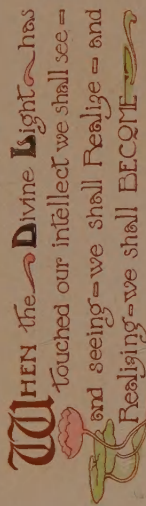 WHEN the Divine Light has
touched our intellect we shall see =
and seeing = we shall Realize = and
Realizing = we shall BECOME